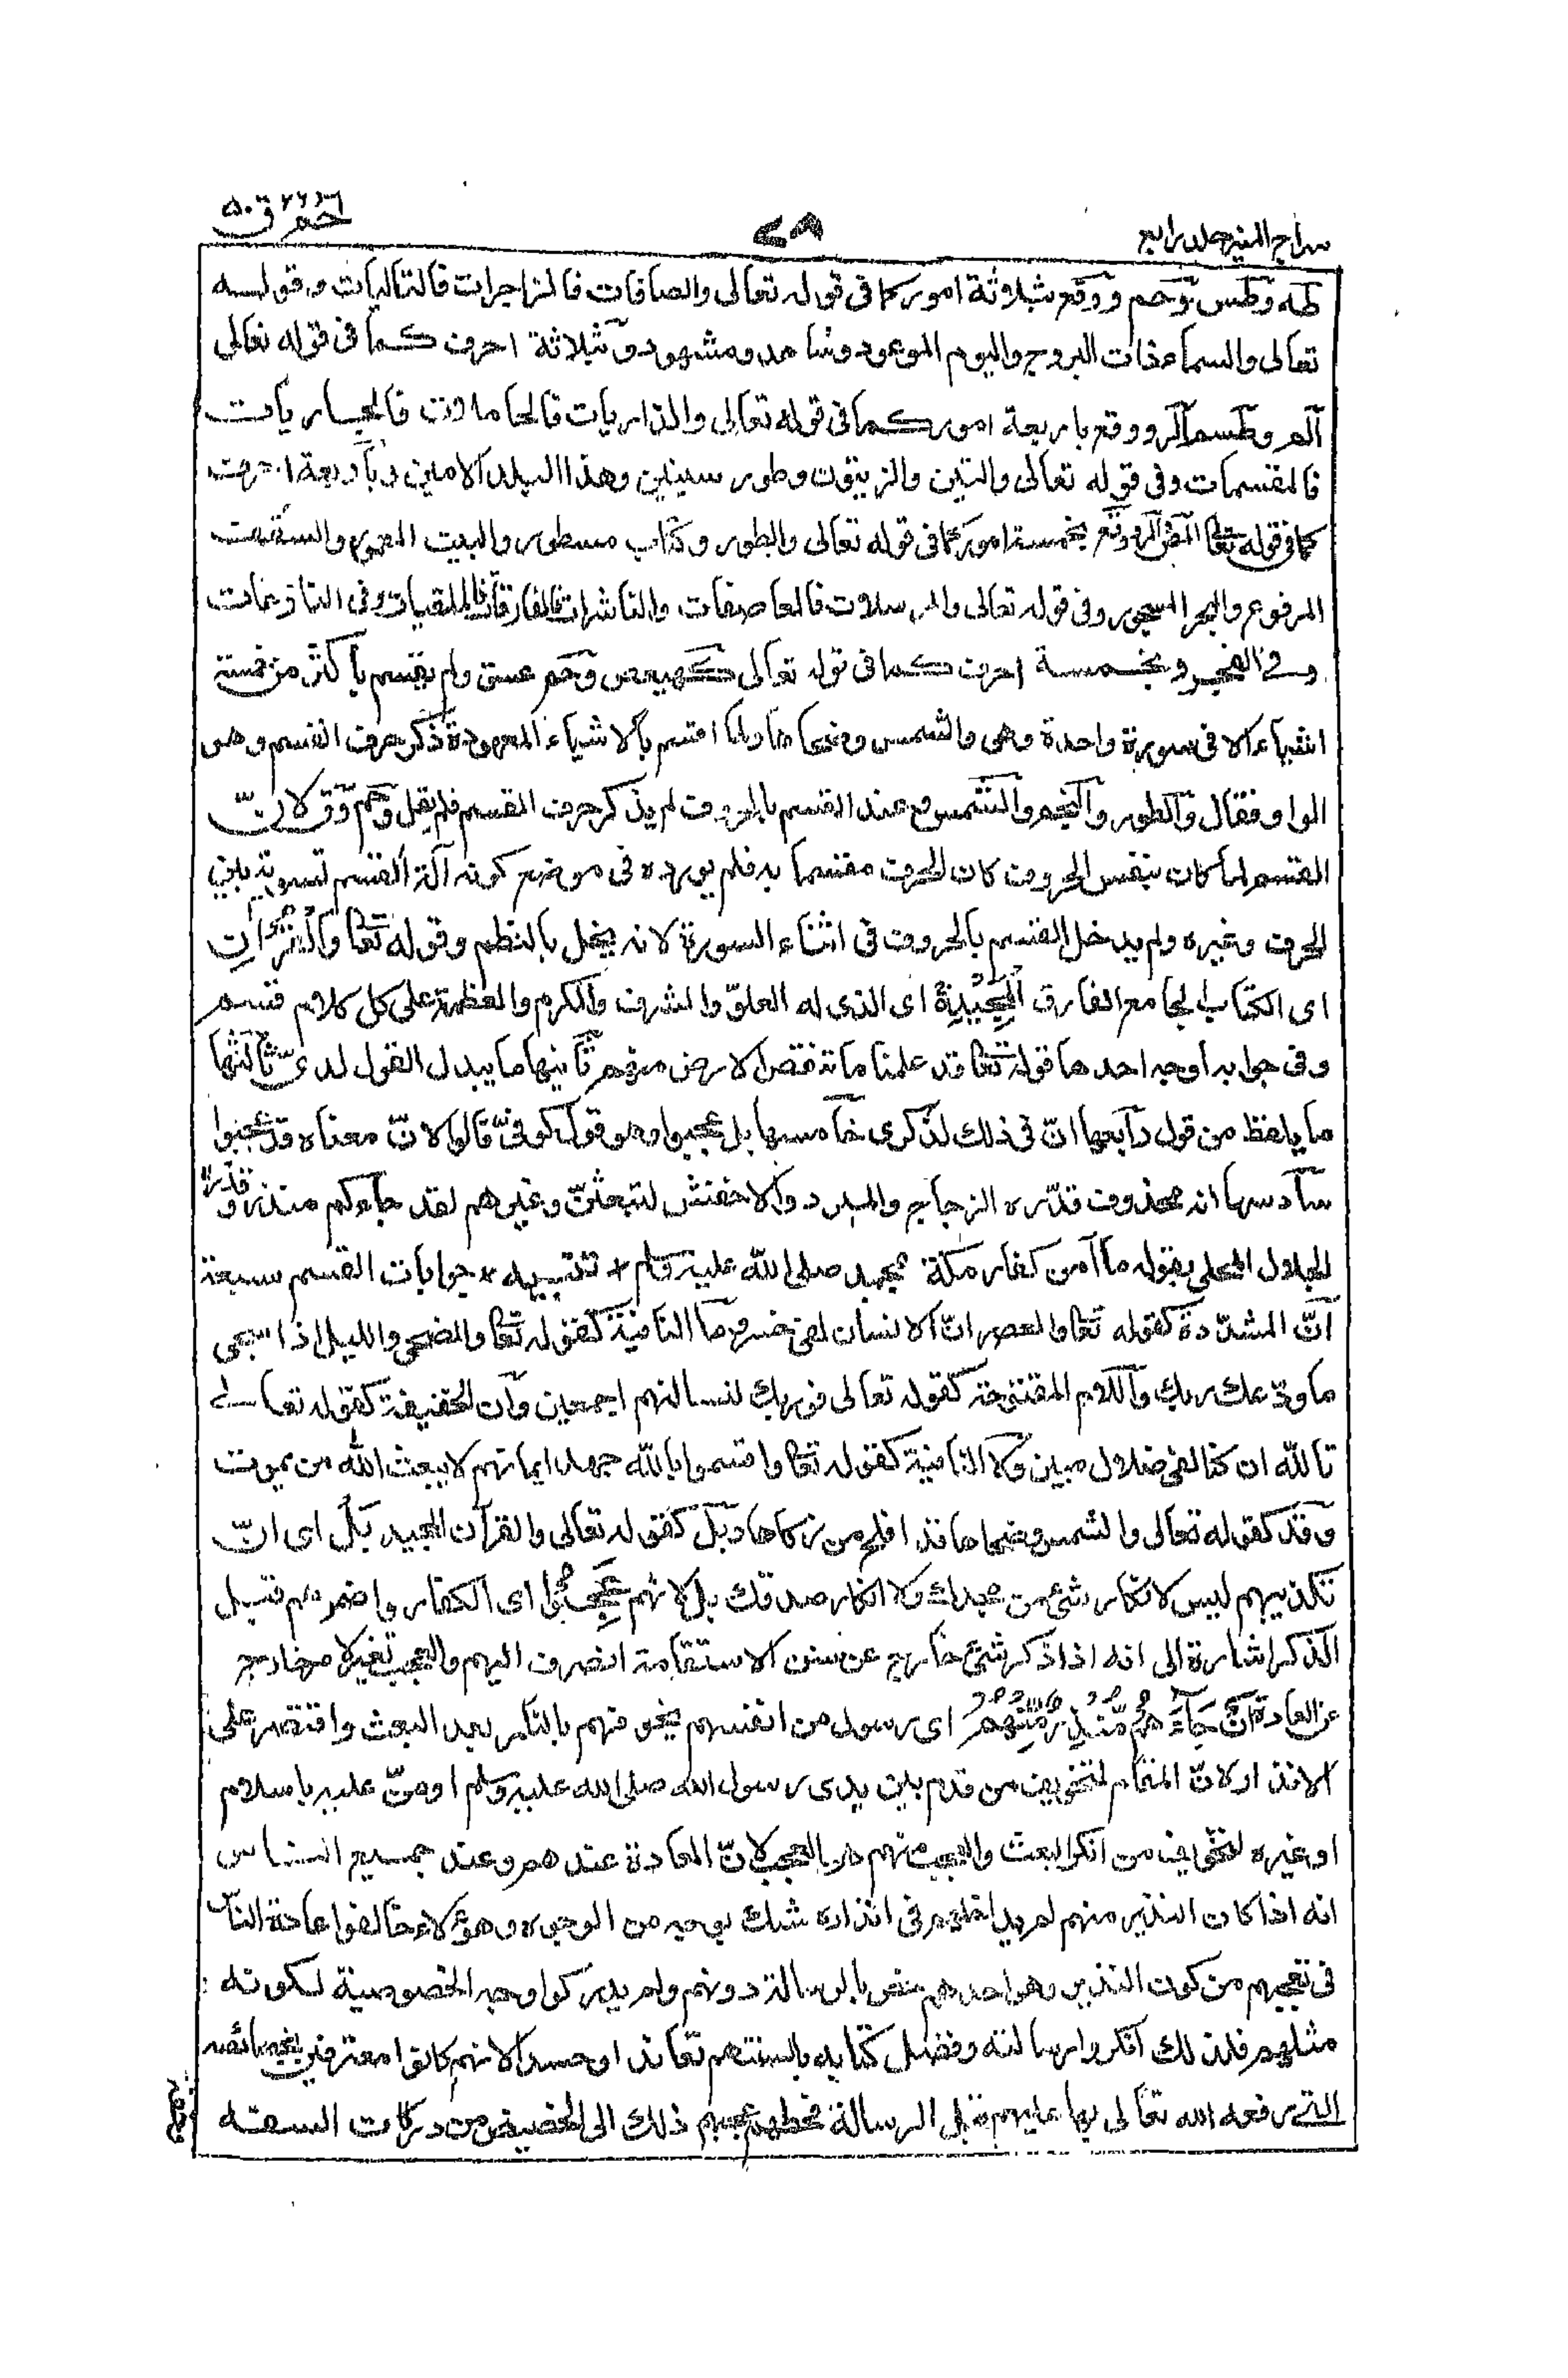 سراج المنير جلد رابع
٧٨
حم ٢٦ ق ٥٠
طه وطس وحم ووقع بثلاثة امور كما فى قوله تعالى والصافات فالزاجرات فالتاليات وقوله
تعالى والسماء ذات البروج واليوم الموعود وشاهد ومشهود وبثلاثة احرف كما فى قوله تعالى
الم وطسم الر ووقع باربعة امور كما فى قوله تعالى والذاريات فالحاملات فالجاريات
فالمقسمات وفى قوله تعالى والتين والزيتون وطور سينين وهذا البلد الامين وباربعة احرف
كما فى قوله تعا المص المر ووقع بخمسة امور كما فى قوله تعالى والطور وكتاب مسطور والبيت المعمور والسقف
المرفوع والبحر المسجور وفى قوله تعالى والمرسلات فالعاصفات والناشرات فالفارقات فالملقيات وفى النازعات
وفى الفجر وبخمسة احرف كما فى قوله تعالى كهيعص وحم عسق ولم يقسم باكثر من خمسة
اشياء الا فى سورة واحدة وهى والشمس وضحاها ولما اقسم بالاشياء المعهودة ذكر حرف القسم وهو
الواو فقال والطور والنجم والشمس وعند القسم بالحروف لم يذكر حرف القسم فلم يقل وحم وق لانّ
القسم لما كان بنفس الحروف كان الحرف مقسما به فلم يورده فى موضع كونه آلة القسم تسوية بين
الحرف وغيره ولم يدخل القسم بالحروف فى اثناء السورة لانه يخل بالنظم وقوله تعا وَالْقُرْاٰنِ
اى الكتاب الجامع الفارق الْمَجِيْدِ اى الذى له العلوّ والشرف والكرم والعظمة على كل كلام قسم
وفى جوابه اوجه احدها قوله تعا قد علمنا ما تنقص الارض منهم ثانيها ما يبدل القول لدىّ ثالثها
ما يلفظ من قول رابعها انّ فى ذلك لذكرى خامسها بل عجبوا وهو قول كوفىّ قالوا لانّ معناه قد عجبوا
سادسها انه محذوف قدّره الزجاج والمبرد والاخفش لتبعثنّ وغيرهم لقد جاءكم منذر وقدّره
الجلال المحلى بقوله ما آمن كفار مكة بمحمد صلى الله عليه وسلم * تنبيه * جوابات القسم سبعة
انّ المشدّدة كقوله تعا والعصر انّ الانسان لفى خسر وما النافية كقوله تعا والضحى والليل اذا سجى
ما ودّعك ربك واللام المفتوحة كقوله تعالى فوربك لنسالنهم اجمعين وان الخفيفة كقوله تعالى
تالله ان كنا لفى ضلال مبين ولا النافية كقوله تعا واقسموا بالله جهد ايمانهم لا يبعث الله من يموت
وقد كقوله تعالى والشمس وضحاها قد افلح من زكاها وبل كقوله تعالى والقرآن المجيد بَلْ اى انّ
تكذيبهم ليس لانكار شئ من مجدك ولا انكار صدقك بل لانهم عَجِبُوْٓا اى الكفار واضمرهم قبل
الذكر اشارة الى انه اذا ذكر شئ خارج عن سنن الاستقامة انصرف اليهم والعجب تغير لامر خارج
عن العادة اَنْ جَآءَهُمْ مُّنْذِرٌ مِّنْهُمْ اى رسول من انفسهم يخوفهم بالنار بعد البعث واقتصر على
الانذار لانّ المقام لتخويف من قدم بين يدى رسول الله صلى الله عليه وسلم او منّ عليه باسلام
او غيره لتخويف من انكر البعث والعجب منهم هو العجب لانّ العادة عندهم وعند جميع الناس
انه اذا كان النذير منهم لم يداخلهم فى انذاره شك بوجه من الوجوه وهؤلاء خالفوا عادة الناس
فى تعجبهم من كون النذير وهو احدهم خص بالرسالة دونهم ولم يدركوا وجه الخصوصية لكونه
مثلهم فلذلك انكروا رسالته وفضل كتابه بالسنتهم تعاندا وحسدا لانهم كانوا معترفين بخصائصه
التى رفعه الله تعالى بها عليهم قبل الرسالة فحطهم عجبهم ذلك الى الحضيض من دركات السفه